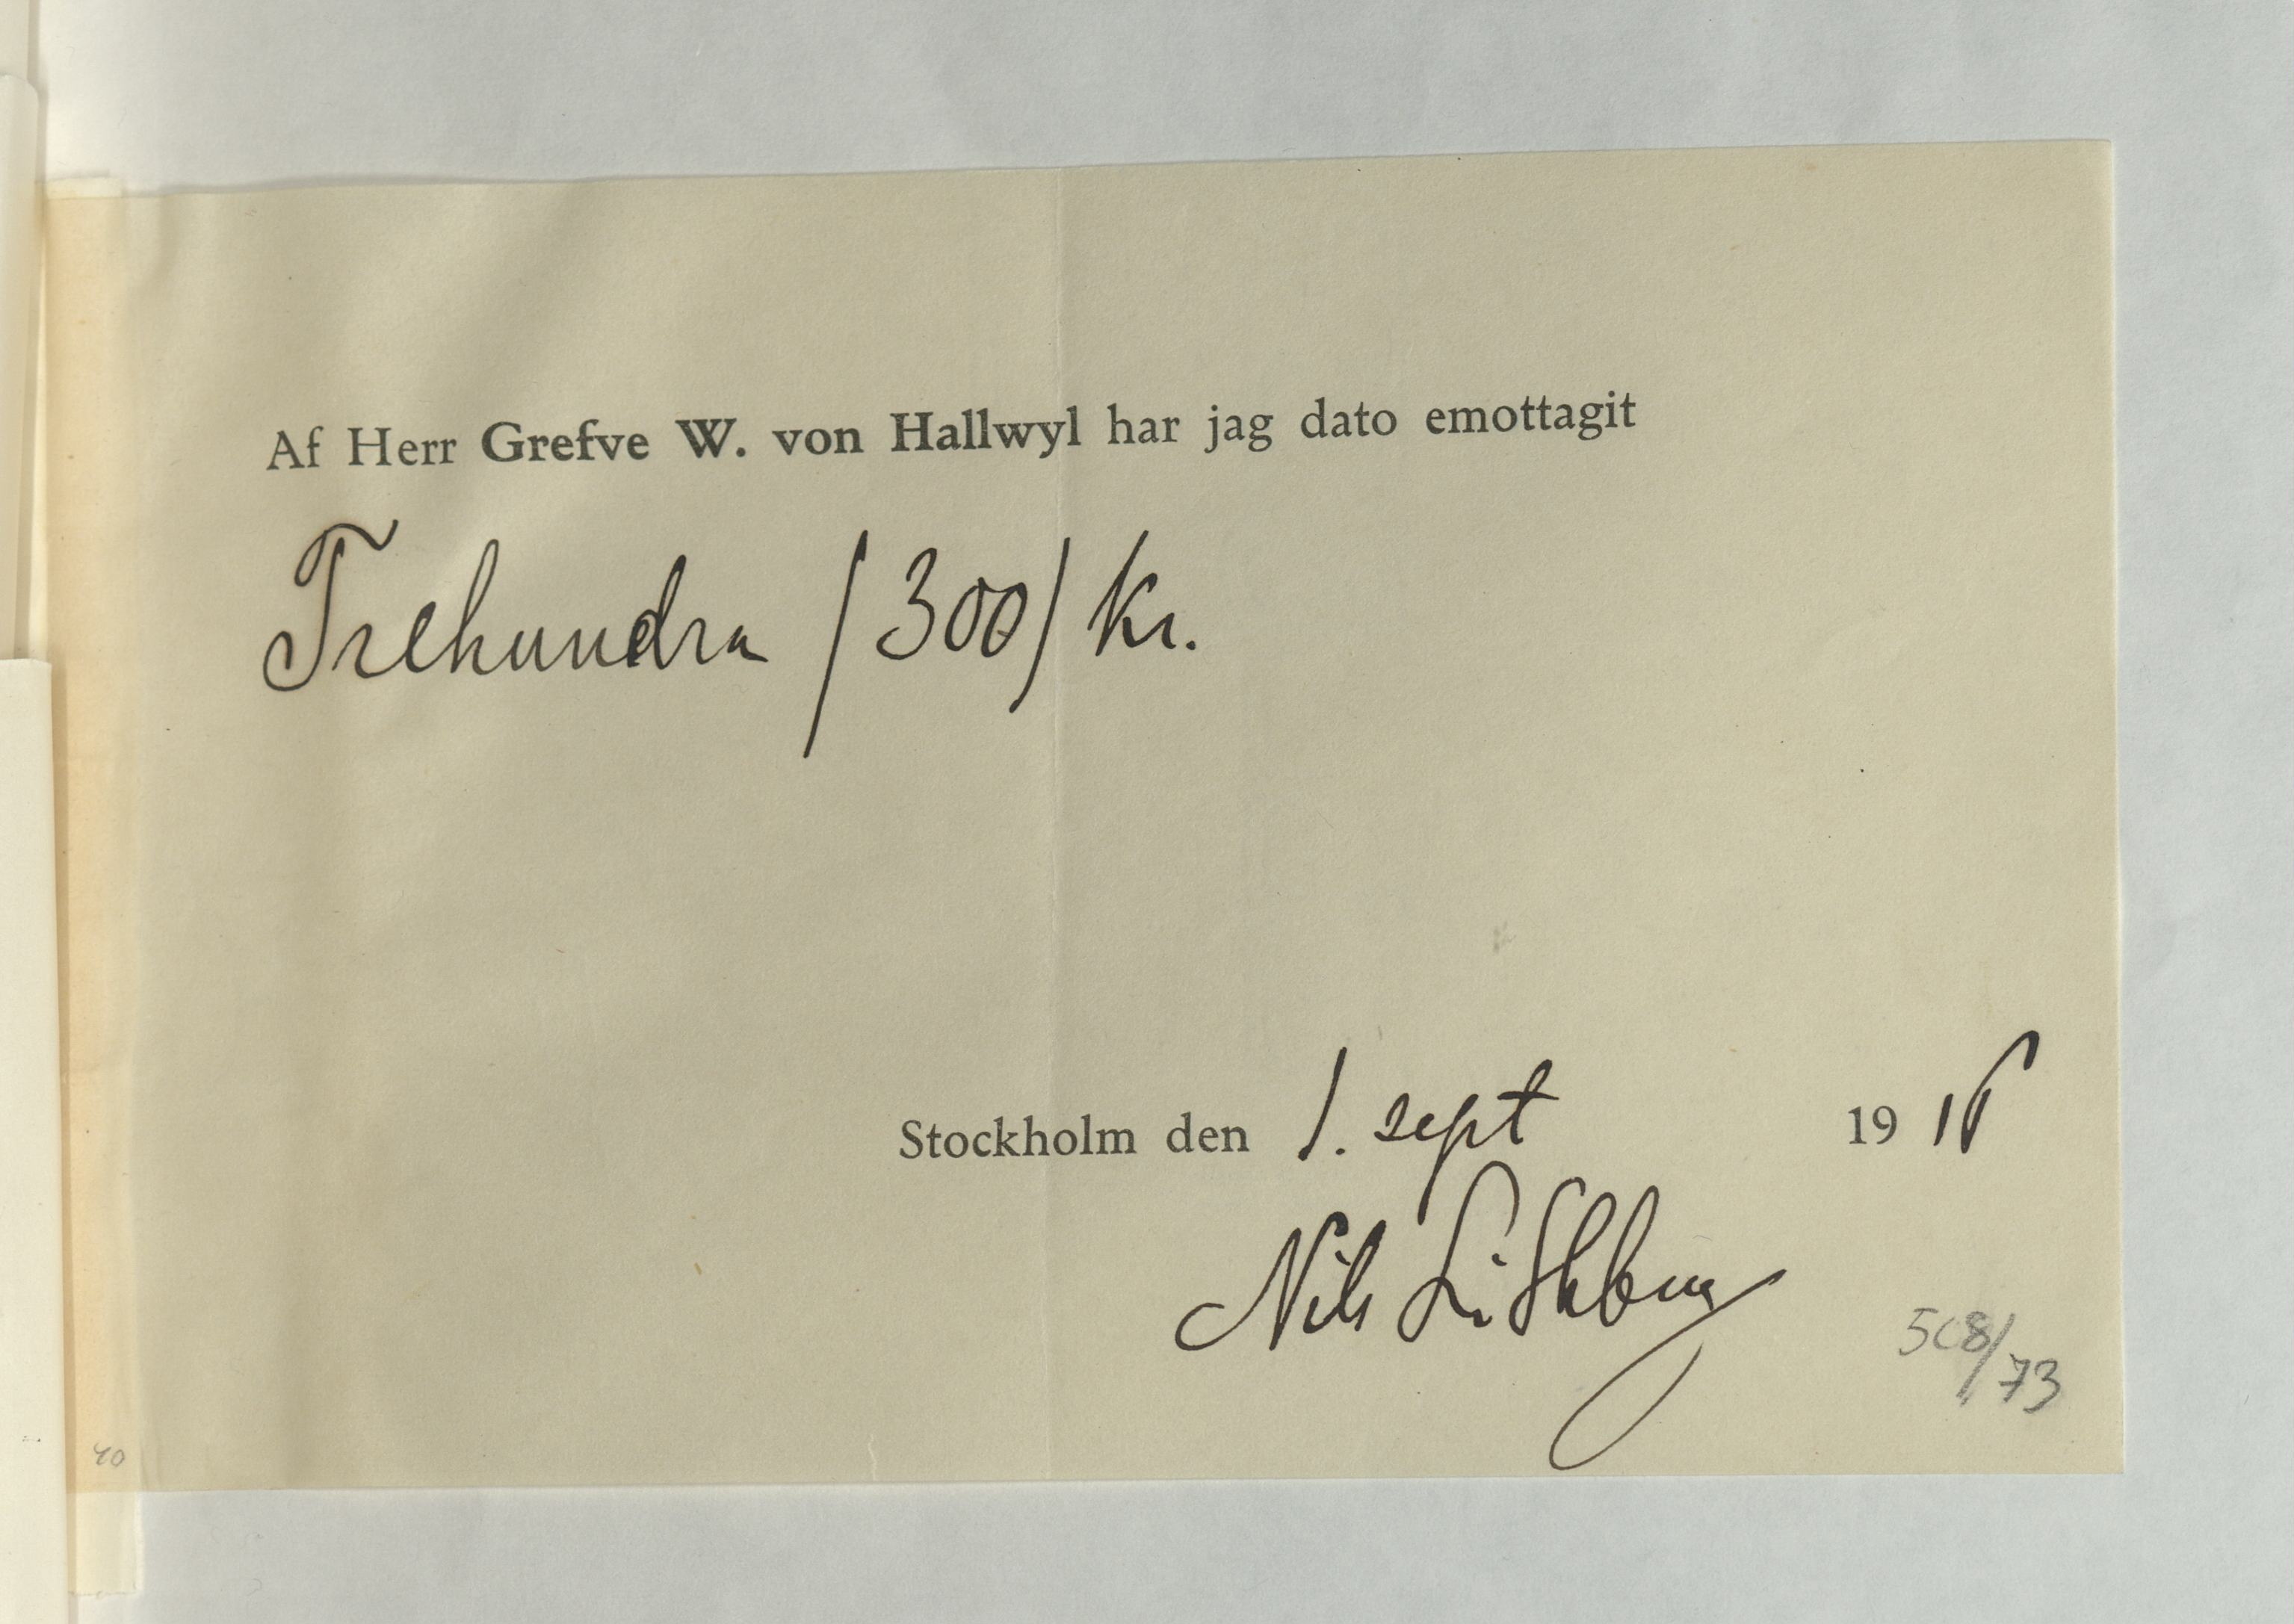 Af Herr Grefve W. von Hallwyl har jag dato emottagit
Trehundra /300/ Kr.
Stockholm den 1. sept 1916
Nils Lithberg
508/73
40